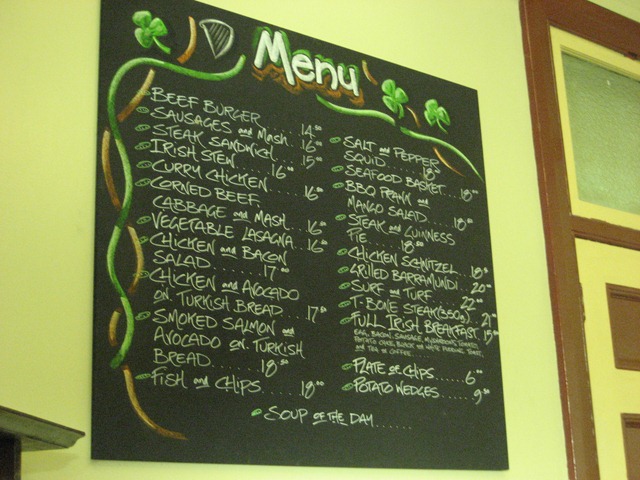 Menu
BEEF BURGER
SAUSAGES and MASH....14.50
STEAK SANDWICH....16.00
IRISH STEW....15.00
CURRY CHICKEN....16.00
CORNED BEEF....16.00
CABBAGE and MASH
VEGETABLE LASAGNA...16.00
CHICKEN and BACON...16.00
SALAD.......17.00
CHICKEN and AVOCADO
ON TURKISH BREAD....17.50
SMOKED SALMON and
AVOCADO ON TURKISH
BREAD........18.50
FISH and CHIPS......18.00
SALT and PEPPER
SQUID......18
SEAFOOD BASKET....18.00
BBQ PRAWN and
MANGO SALAD....18.00
STEAK and GUINNESS
PIE......18.00
CHICKEN SCHNITZEL...18.50
GRILLED BARRAMUNDI..20.00
SURF and TURF.....22.00
T-BONE STEAK (350g)..21.00
FULL IRISH BREAKFAST.15.50
EGG, BACON, SAUSAGE, MUSHROOMS, TOMATO,
POTATO CAKE, BLACK OR WHITE PUDDING, TOAST,
and TEA OR COFFEE
PLATE OF CHIPS.....6.00
POTATO WEDGES.....9.50
SOUP OF THE DAY......